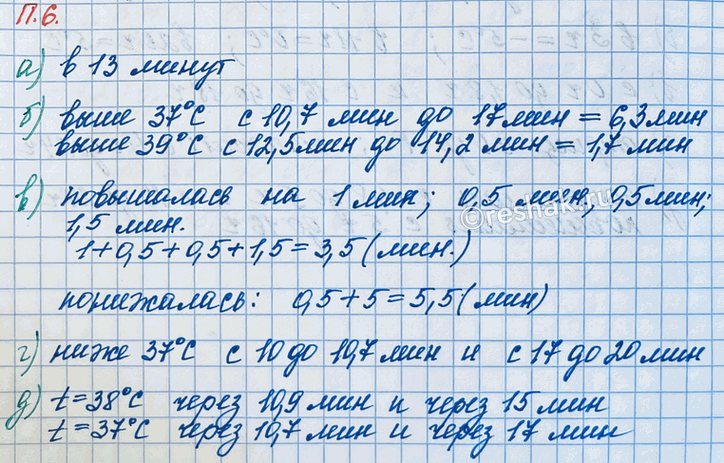 П.6.
а) в 13 минут
б) выше 37°С с 10,7 мин до 17 мин = 6,3 мин
выше 39°С с 12,5 мин до 14,2 мин = 1,7 мин
в) повышалась на 1 мин; 0,5 мин; 0,5 мин;
1,5 мин.
©reshak.ru
1+0,5+0,5+1,5=3,5 (мин.)
понижалась: 0,5+5=5,5 (мин)
г) ниже 37°С с 10 до 10,7 мин и с 17 до 20 мин
д) t=38°С через 10,9 мин и через 15 мин
t=37°С через 10,7 мин и через 17 мин